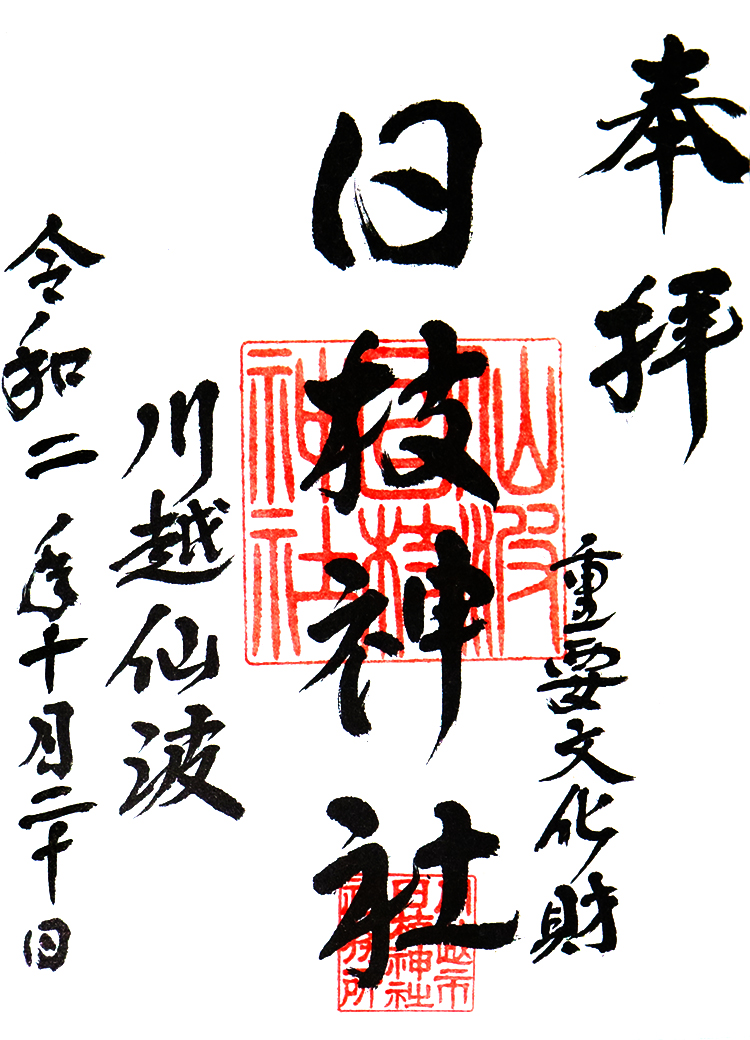 奉拝
重要文化財
日枝神社
仙波
日枝
神社
川越市
日枝神社
社務所
川越仙波
令和二年十月二十日